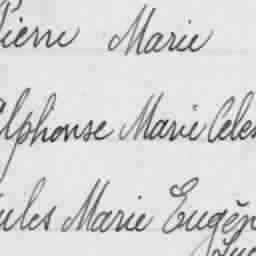 Pierre Marie
Alphonse Marie Celes
ules Marie Eugèn